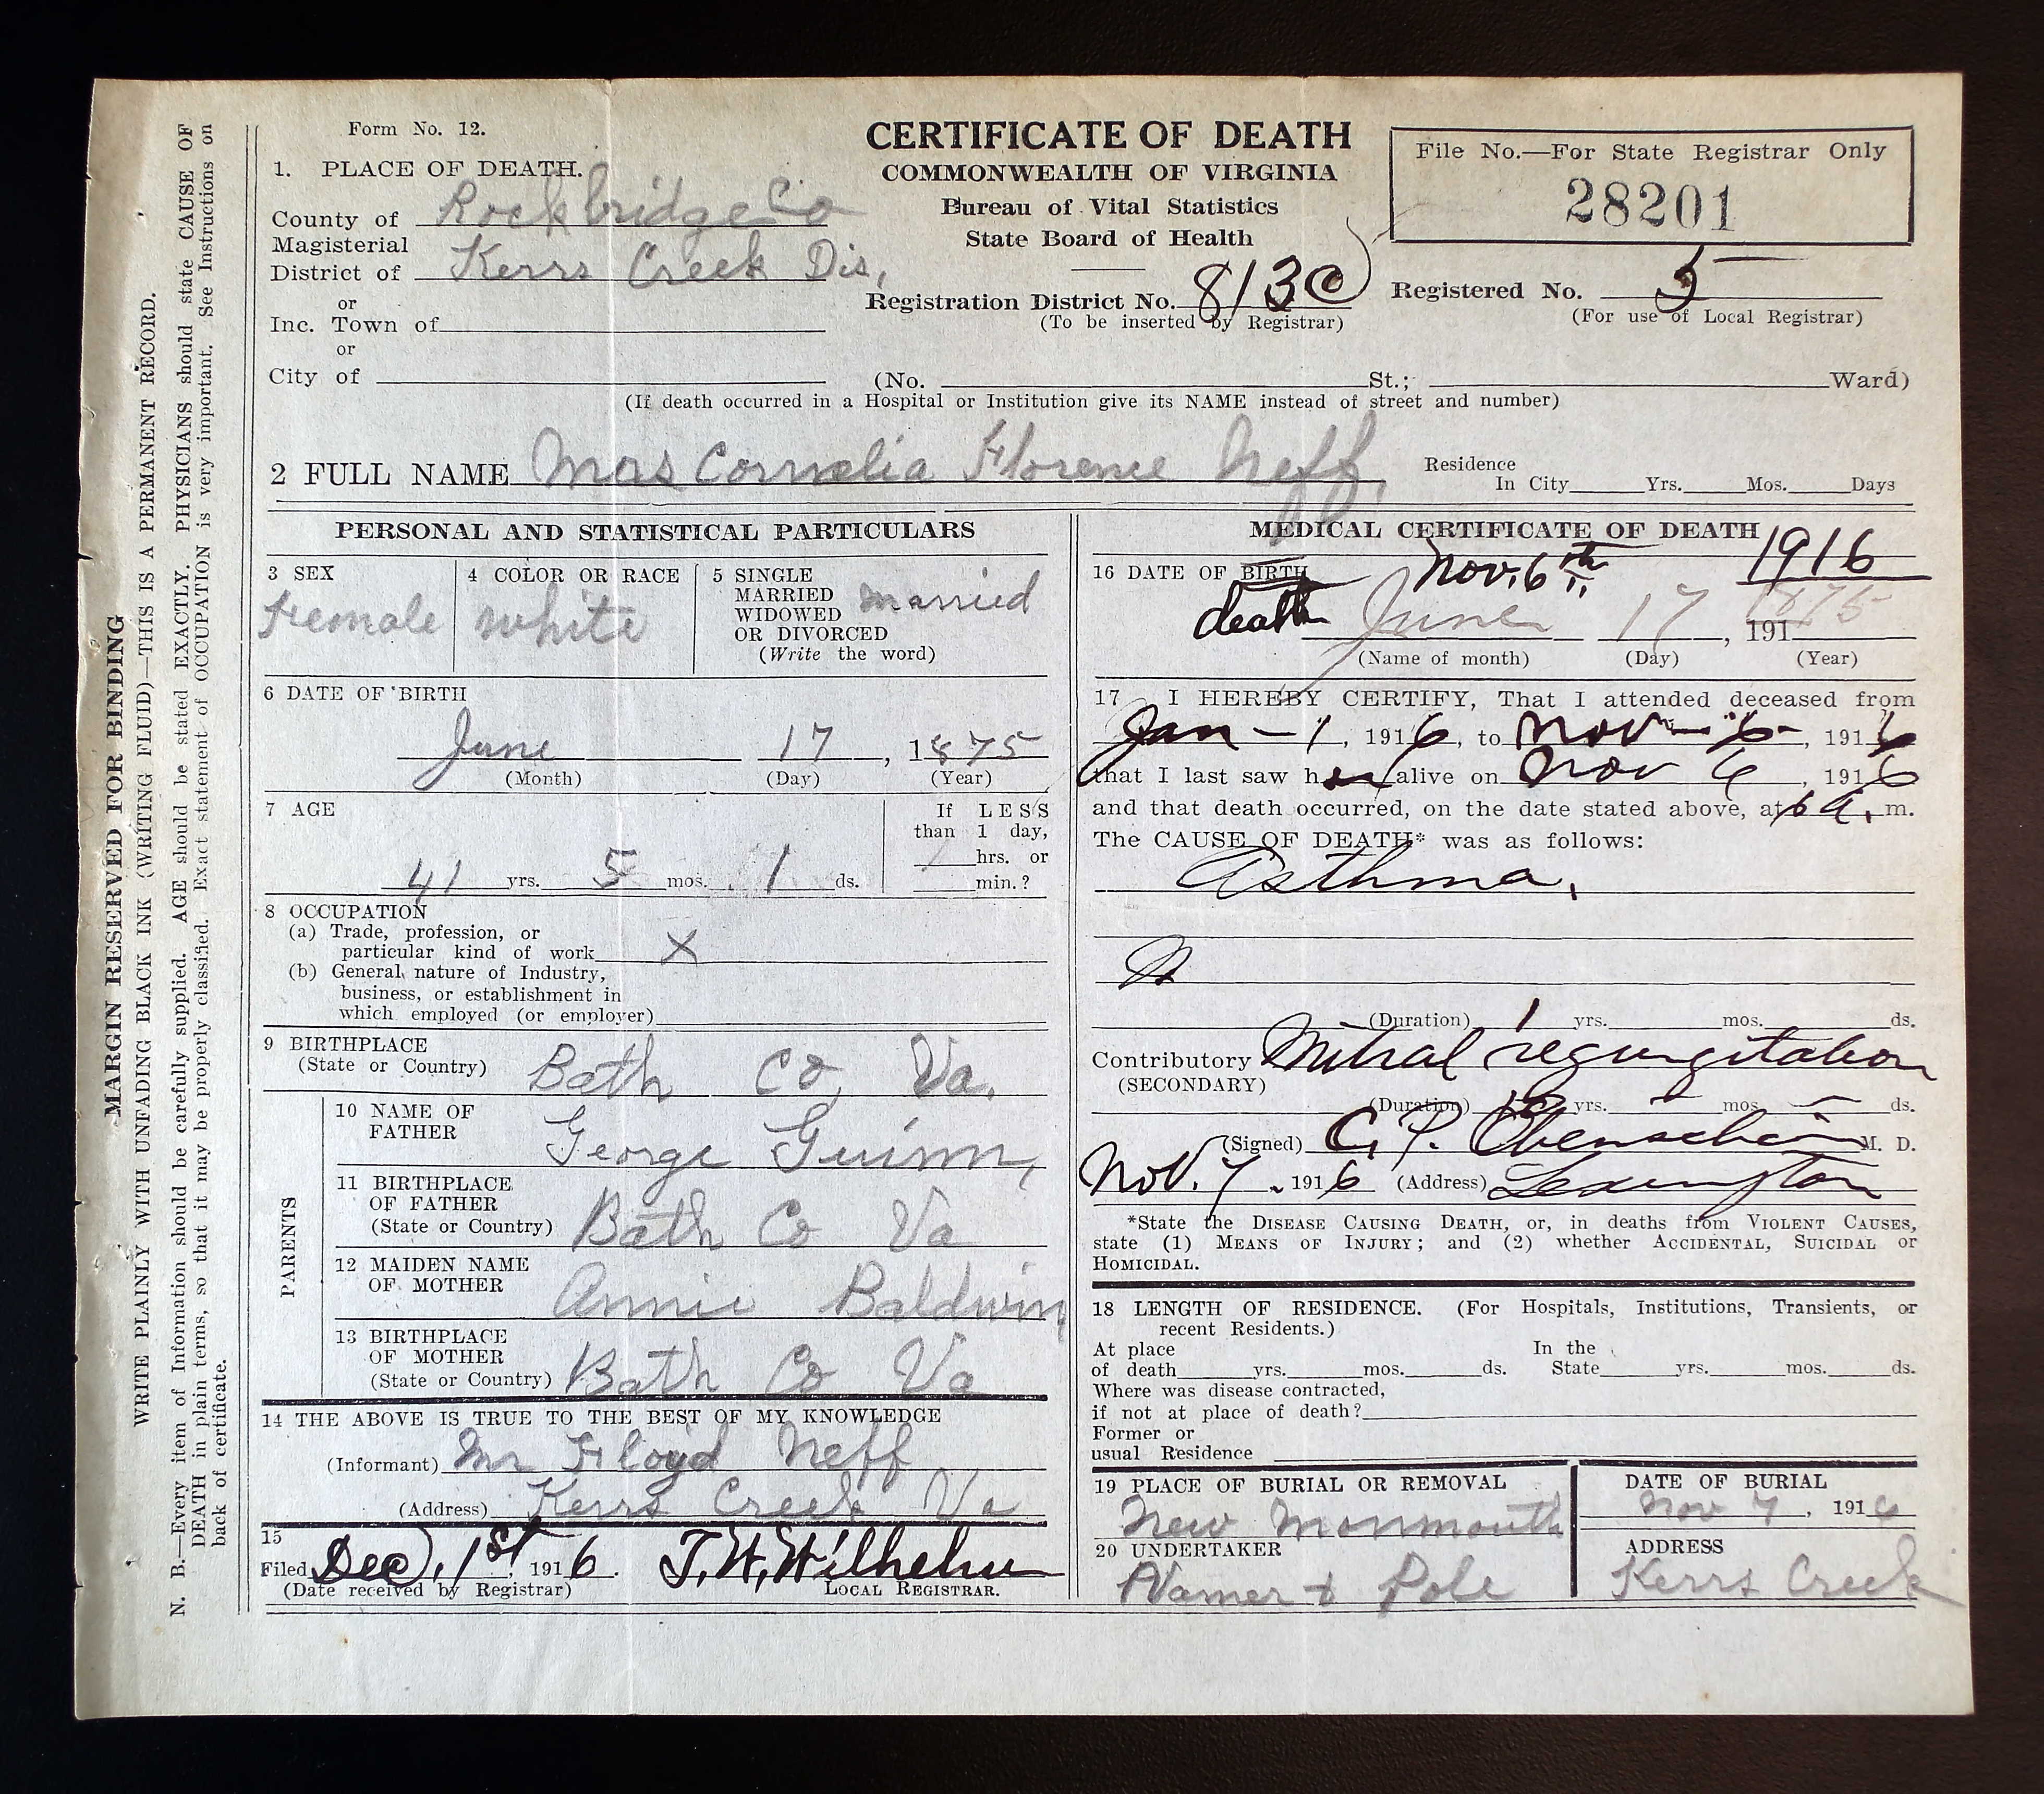 Form No. 12.
CERTIFICATE OF DEATH
COMMONWEALTH OF VIRGINIA
Bureau of Vital Statistics
State Board of Health
File No.—For State Registrar Only
28201
1. PLACE OF DEATH.
County of Rockbridge Co
Magisterial
District of Kerrs Creek Dis,
or
Inc. Town of
or
City of
Registration District No. 813C
(To be inserted by Registrar)
Registered No. 5
(For use of Local Registrar)
(No. St.; Ward)
(If death occurred in a Hospital or Institution give its NAME instead of street and number)
2 FULL NAME Mrs Cornelia Florence Neff,
Residence
In City Yrs. Mos. Days
PERSONAL AND STATISTICAL PARTICULARS
3 SEX
Female
4 COLOR OR RACE
White
5 SINGLE
MARRIED
WIDOWED
OR DIVORCED
(Write the word)
married
6 DATE OF BIRTH
June 17, 1875
(Month) (Day) (Year)
7 AGE
41 yrs. 5 mos. 1 ds.
If LESS
than 1 day,
hrs. or
min.?
8 OCCUPATION
(a) Trade, profession, or
particular kind of work X
(b) General nature of Industry,
business, or establishment in
which employed (or employer)
9 BIRTHPLACE
(State or Country) Bath Co, Va.
PARENTS
10 NAME OF
FATHER George Guinn,
11 BIRTHPLACE
OF FATHER
(State or Country) Bath Co Va
12 MAIDEN NAME
OF MOTHER Annie Baldwin
13 BIRTHPLACE
OF MOTHER
(State or Country) Bath Co Va
14 THE ABOVE IS TRUE TO THE BEST OF MY KNOWLEDGE
(Informant) Mr Floyd Neff
(Address) Kerrs Creek Va
15
Filed Dec. 1st, 1916. T. W. Wilhelm
(Date received by Registrar) LOCAL REGISTRAR.
MEDICAL CERTIFICATE OF DEATH
16 DATE OF BIRTH Nov. 6th, 1916
death June 17, 191 1875
(Name of month) (Day) (Year)
17 I HEREBY CERTIFY, That I attended deceased from
Jan - 1, 1916, to Nov - 6 -, 1916
that I last saw her alive on Nov 6, 1916
and that death occurred, on the date stated above, at 6 a. m.
The CAUSE OF DEATH* was as follows:
Asthma,
(Duration) 1 yrs. mos. ds.
Contributory Mitral regurgitation
(SECONDARY)
(Duration) yrs. mos. ds.
(Signed) C. P. Obenschain M. D.
Nov. 7, 1916 (Address) Lexington
*State the DISEASE CAUSING DEATH, or, in deaths from VIOLENT CAUSES,
state (1) MEANS OF INJURY; and (2) whether ACCIDENTAL, SUICIDAL or
HOMICIDAL.
18 LENGTH OF RESIDENCE. (For Hospitals, Institutions, Transients, or
recent Residents.)
At place In the
of death yrs. mos. ds. State yrs. mos. ds.
Where was disease contracted,
if not at place of death?
Former or
usual Residence
19 PLACE OF BURIAL OR REMOVAL
New Monmouth
DATE OF BURIAL
Nov 7, 1916
20 UNDERTAKER
Vamer & Pole
ADDRESS
Kerrs Creek
MARGIN RESERVED FOR BINDING
WRITE PLAINLY WITH UNFADING BLACK INK (WRITING FLUID)—THIS IS A PERMANENT RECORD.
N. B.—Every item of Information should be carefully supplied. AGE should be stated EXACTLY. PHYSICIANS should state CAUSE OF
DEATH in plain terms, so that it may be properly classified. Exact statement of OCCUPATION is very important. See Instructions on
back of certificate.